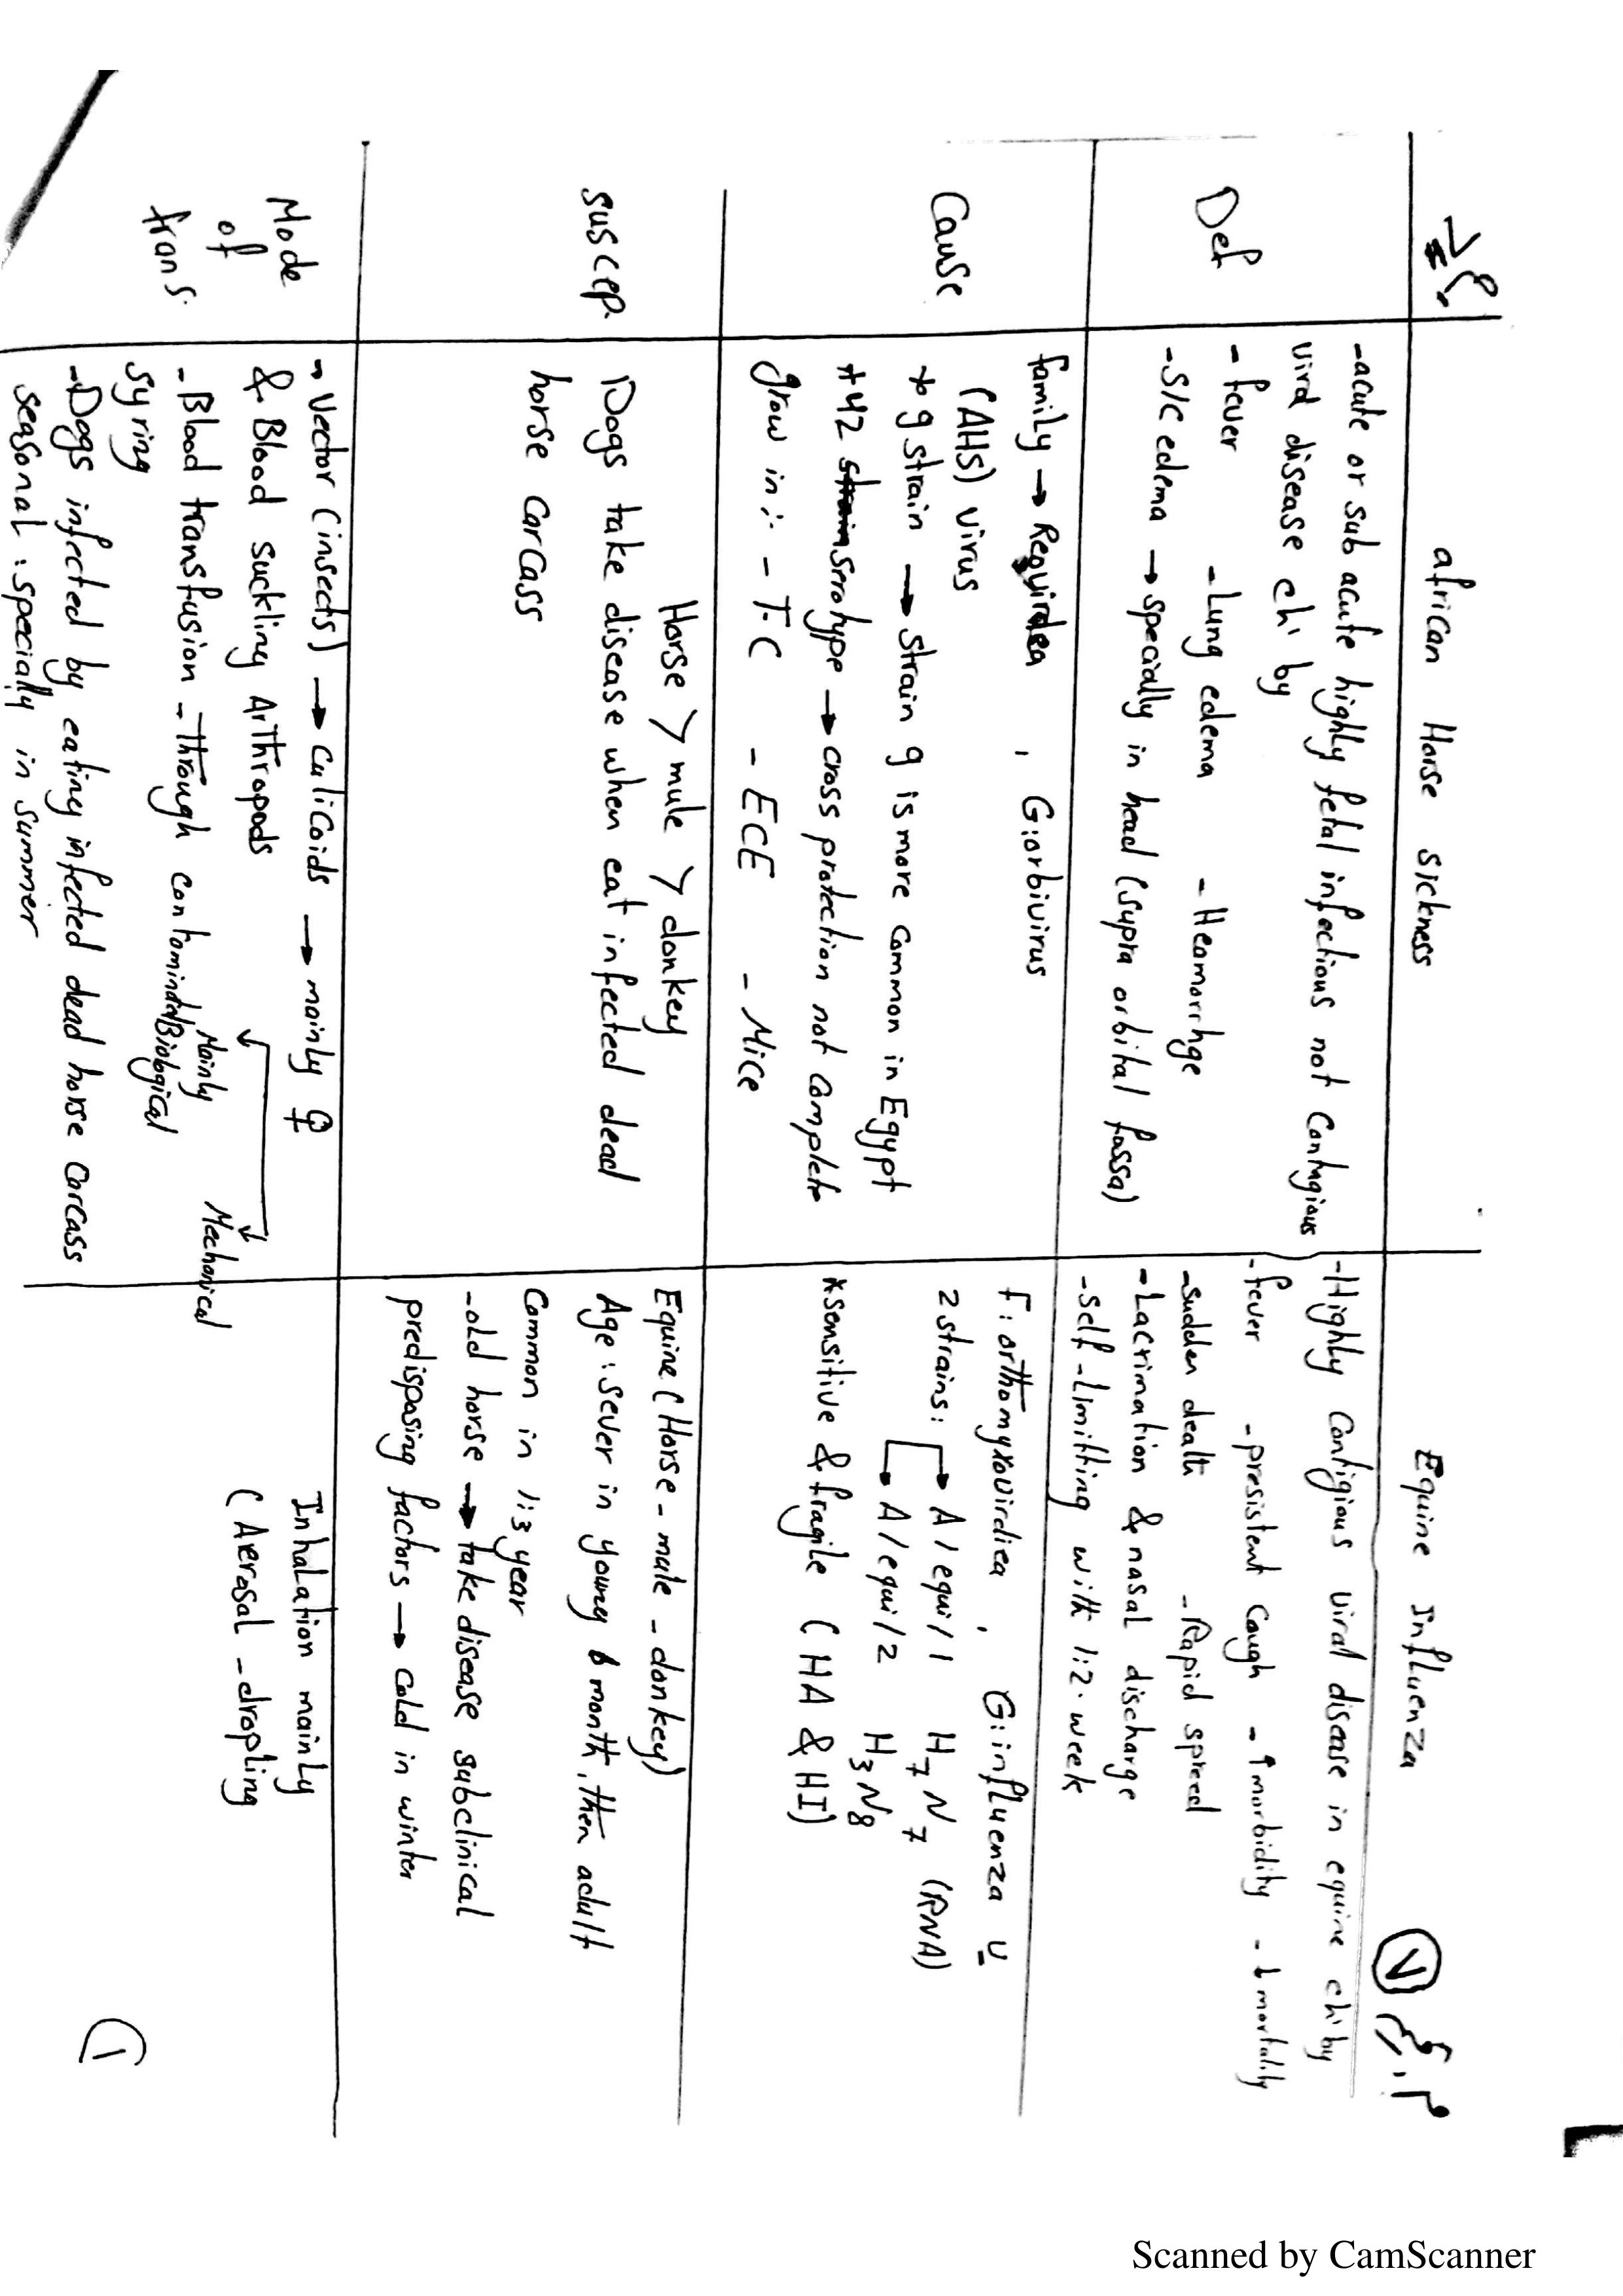 african Horse sickness
Equine Influenza
Def
-acute or sub acute highly fetal infectious not Contagious
viral disease ch' by
- fever - Lung edema - Heamorrhge
-S/C edema → specially in head (supra orbital fossa)
-Highly Contigious viral disease in equine ch' by
-fever -presistent Cough - ↑morbidity - ↓mortality
-sudden dealt -Rapid spreed
-Lacrimation & nasal discharge
-self-limitting with 1:2 week
Cause
family → Reoviridea , G:orbivirus
(AHS) virus
* 9 strain → strain 9 is more common in Egypt
* 42 serotype → cross protection not complete
grow in :- - T.C - ECE - Mice
F: orthomyxoviridiea , G:influenza v
2 strains: → A/equi/1 H7N7 (RNA)
→ A/equi/2 H3N8
*sensitive & fragile (HA & HI)
suscep.
Horse > mule > donkey
Dogs take disease when eat infected dead
horse carcass
Equine (Horse - mule - donkey)
Age : sever in young 6 month, then adult
Common in 1:3 year
-old horse → take disease subclinical
predisposing factors → cold in winter
Mode
of
trans.
- vector (insects) → culicoids → mainly ♀
& Blood suckling Arthropods
Mainly Biological
Mechanical
- Blood transfusion - Through contominated
syring
-Dogs infected by eating infected dead horse carcass
seasonal : specially in summer
Inhalation mainly
(Aerosal - dropling
Scanned by CamScanner